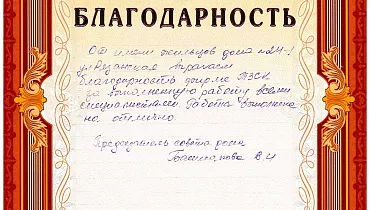 БЛАГОДАРНОСТЬ
От имени жильцов дома №24-1
ул Рязанская
благодарность фирме ТЗСК
за выполненную работу всеми
специалистами. Работа выполнена
на отлично.
Председатель совета дома
В.И